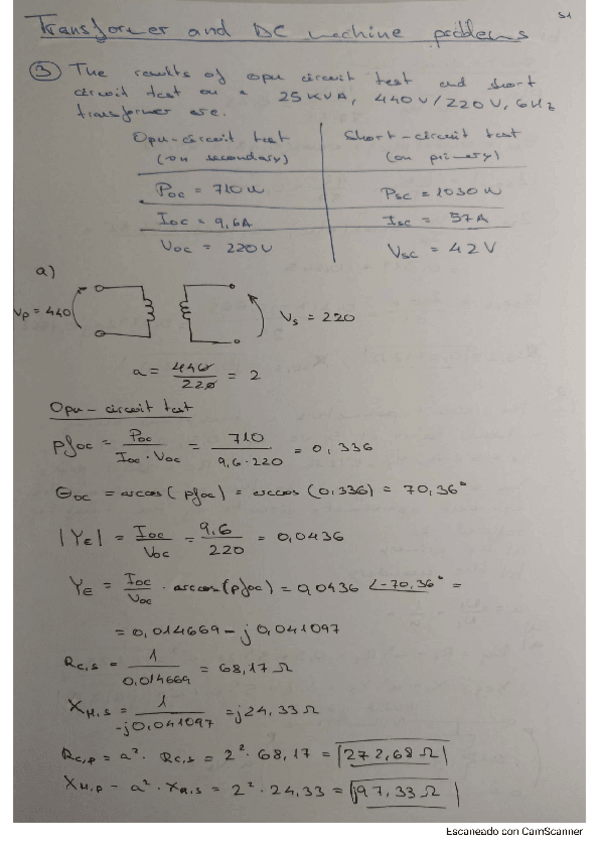 S1
Transformer and DC machine problems
③ The results of open circuit test and short
circuit test on a 25KVA, 440V/220V, 6Hz
transformer are.
Open-circuit test Short-circuit test
(on secondary) (on primary)
Poc = 710W Psc = 1030W
Ioc = 9,6A Isc = 57A
Voc = 220V Vsc = 42V
a)
Vp = 440 Vs = 220
a = 440/220 = 2
Open-circuit test
pfoc = Poc/(Ioc · Voc) = 710/(9,6·220) = 0,336
θoc = arccos(pfoc) = arccos(0,336) = 70,36°
|YE| = Ioc/Voc = 9,6/220 = 0,0436
YE = Ioc/Voc · arccos(pfoc) = 0,0436 ∠-70,36° =
= 0,014669 - j0,041097
Rc,s = 1/0,014669 = 68,17 Ω
XM,s = 1/-j0,041097 = j24,33 Ω
Rc,p = a² · Rc,s = 2² · 68,17 = 272,68 Ω
XM,p = a² · XM,s = 2² · 24,33 = j97,33 Ω
Escaneado con CamScanner